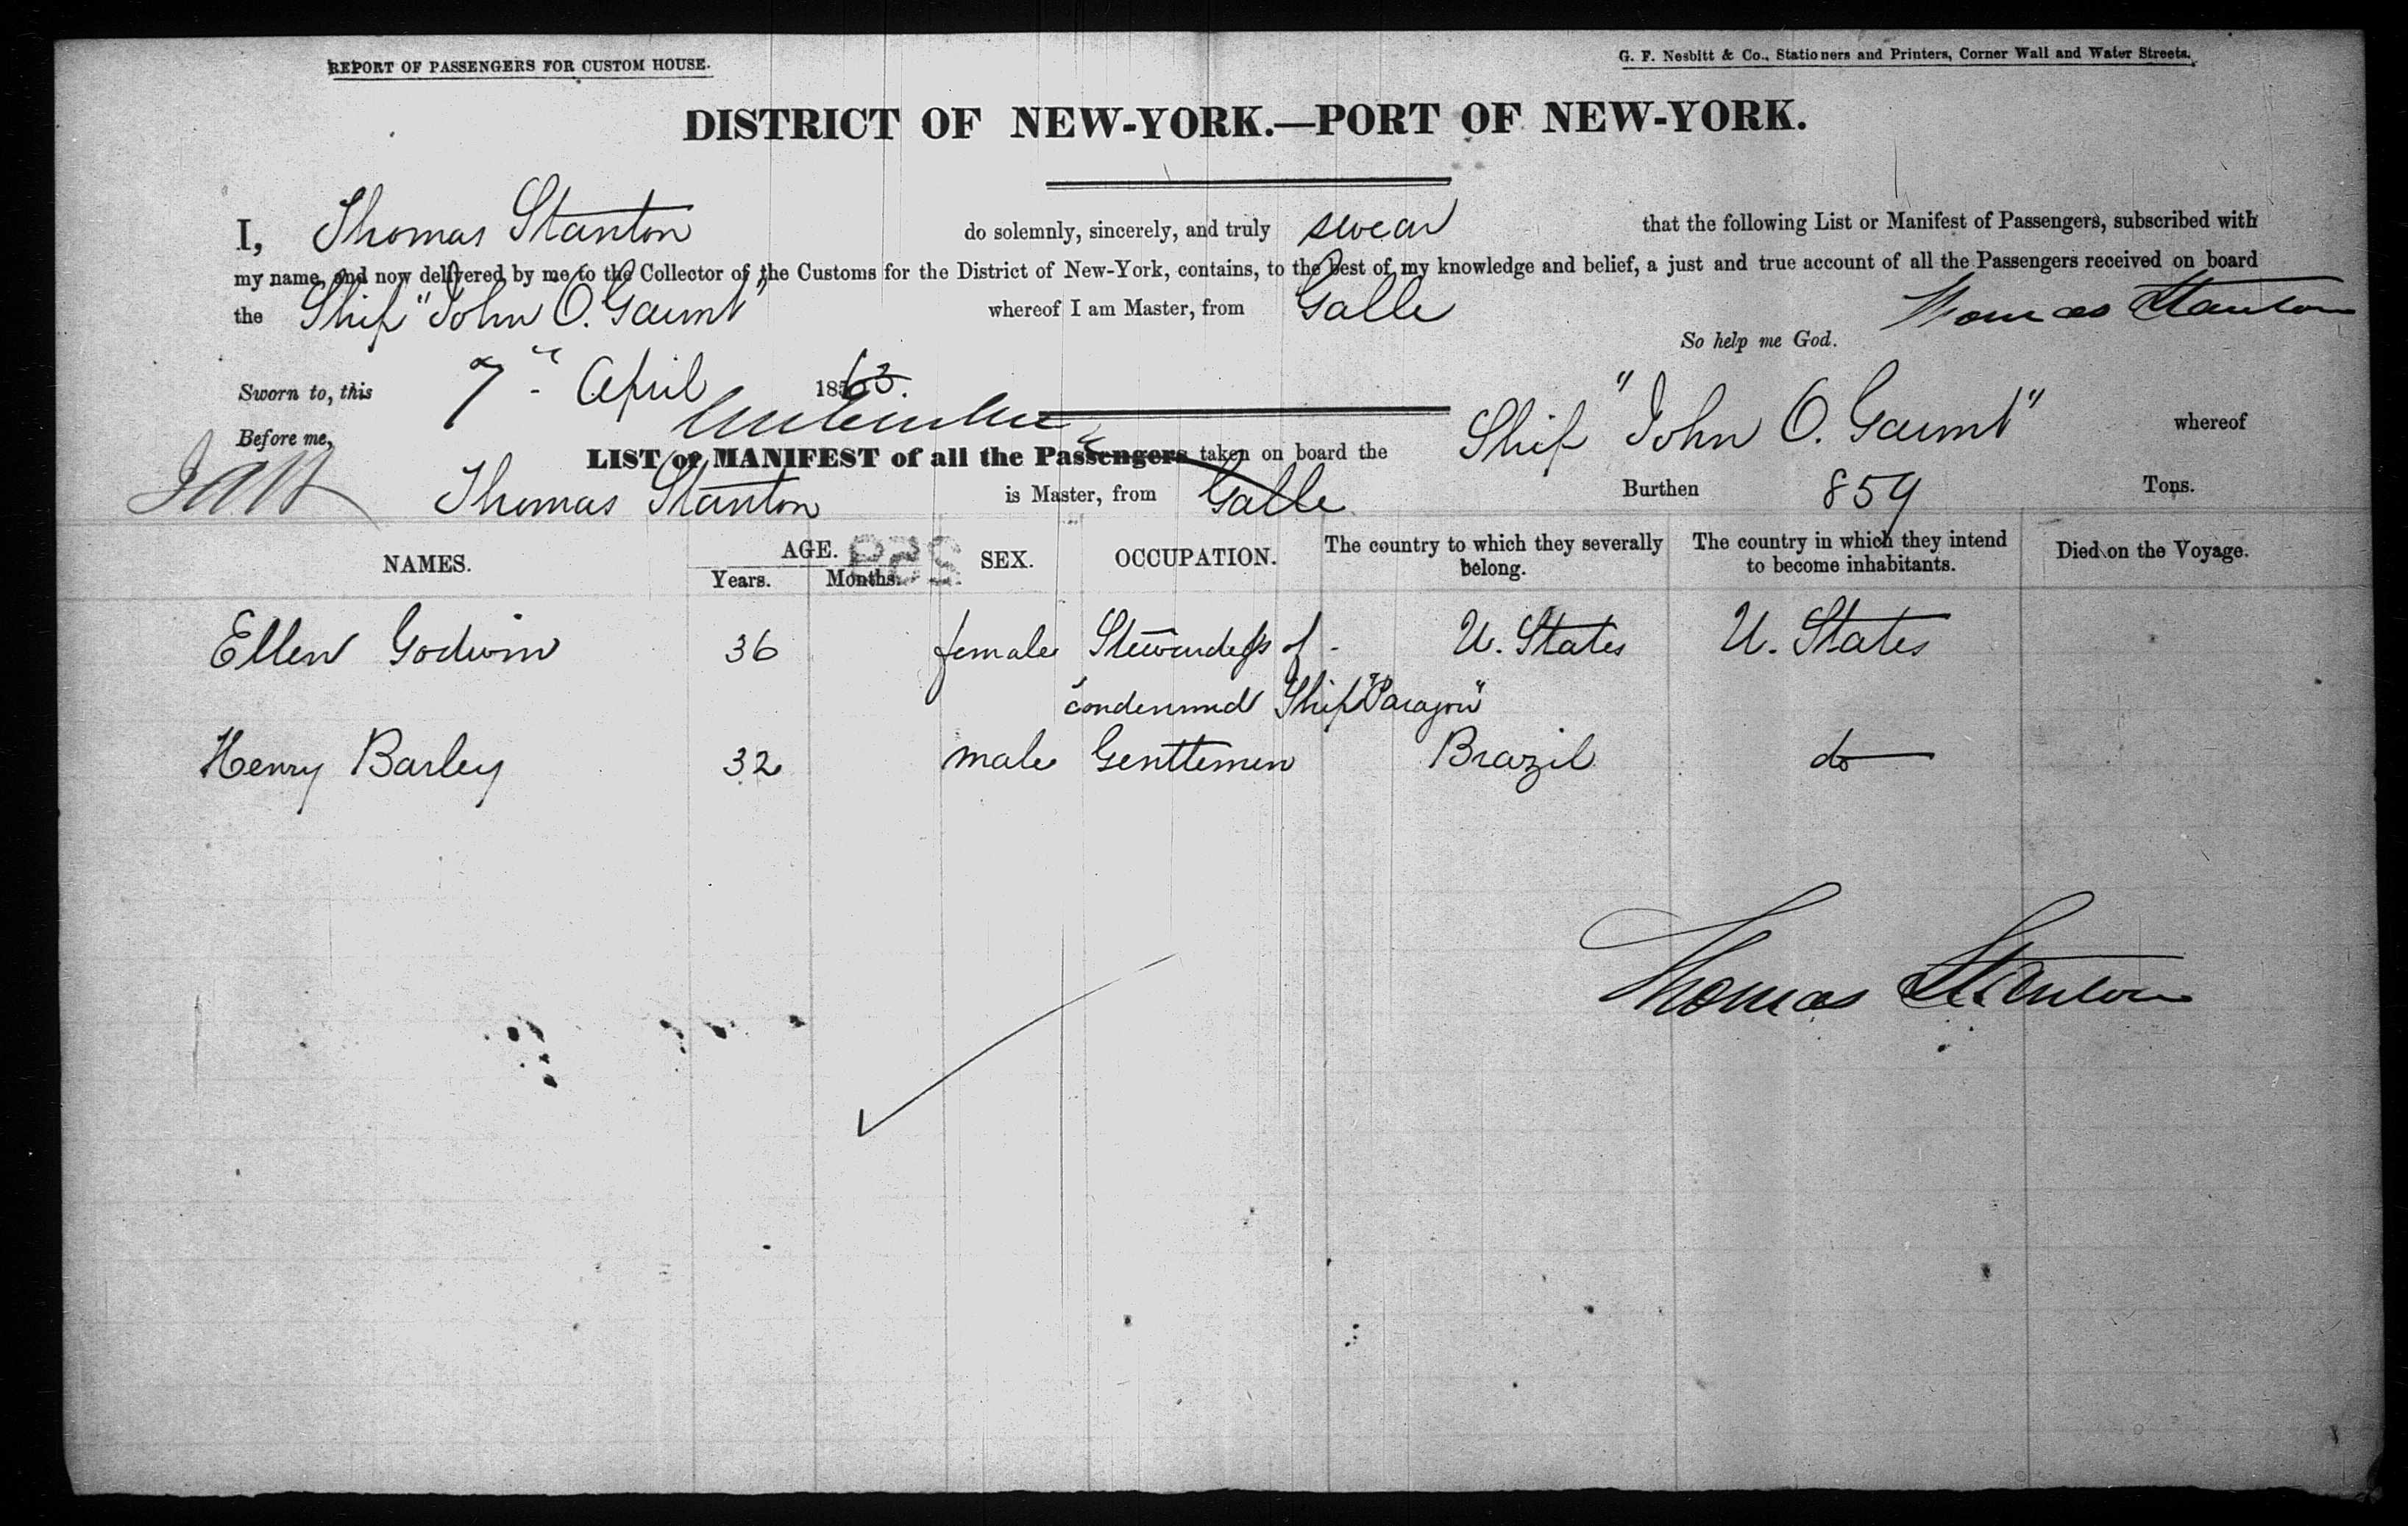 REPORT OF PASSENGERS FOR CUSTOM HOUSE.
G. F. Nesbitt & Co., Stationers and Printers, Corner Wall and Water Streets.
DISTRICT OF NEW-YORK.—PORT OF NEW-YORK.
I, Thomas Stanton do solemnly, sincerely, and truly swear that the following List or Manifest of Passengers, subscribed with
my name, and now delivered by me to the Collector of the Customs for the District of New-York, contains, to the best of my knowledge and belief, a just and true account of all the Passengers received on board
the Ship "John O. Gaunt" whereof I am Master, from Galle
Thomas Stanton
So help me God.
Sworn to, this 7th April 1863.
Before me,
LIST or MANIFEST of all the Passengers taken on board the Ship "John O. Gaunt" whereof
Thomas Stanton is Master, from Galle Burthen 859 Tons.
NAMES. AGE. Years. Months. SEX. OCCUPATION. The country to which they severally belong. The country in which they intend to become inhabitants. Died on the Voyage.
Ellen Godwin 36 female Stewardess of - U. States U. States
condemned Ship "Paragon"
Henry Barley 32 male Gentlemen Brazil do
Thomas Stanton